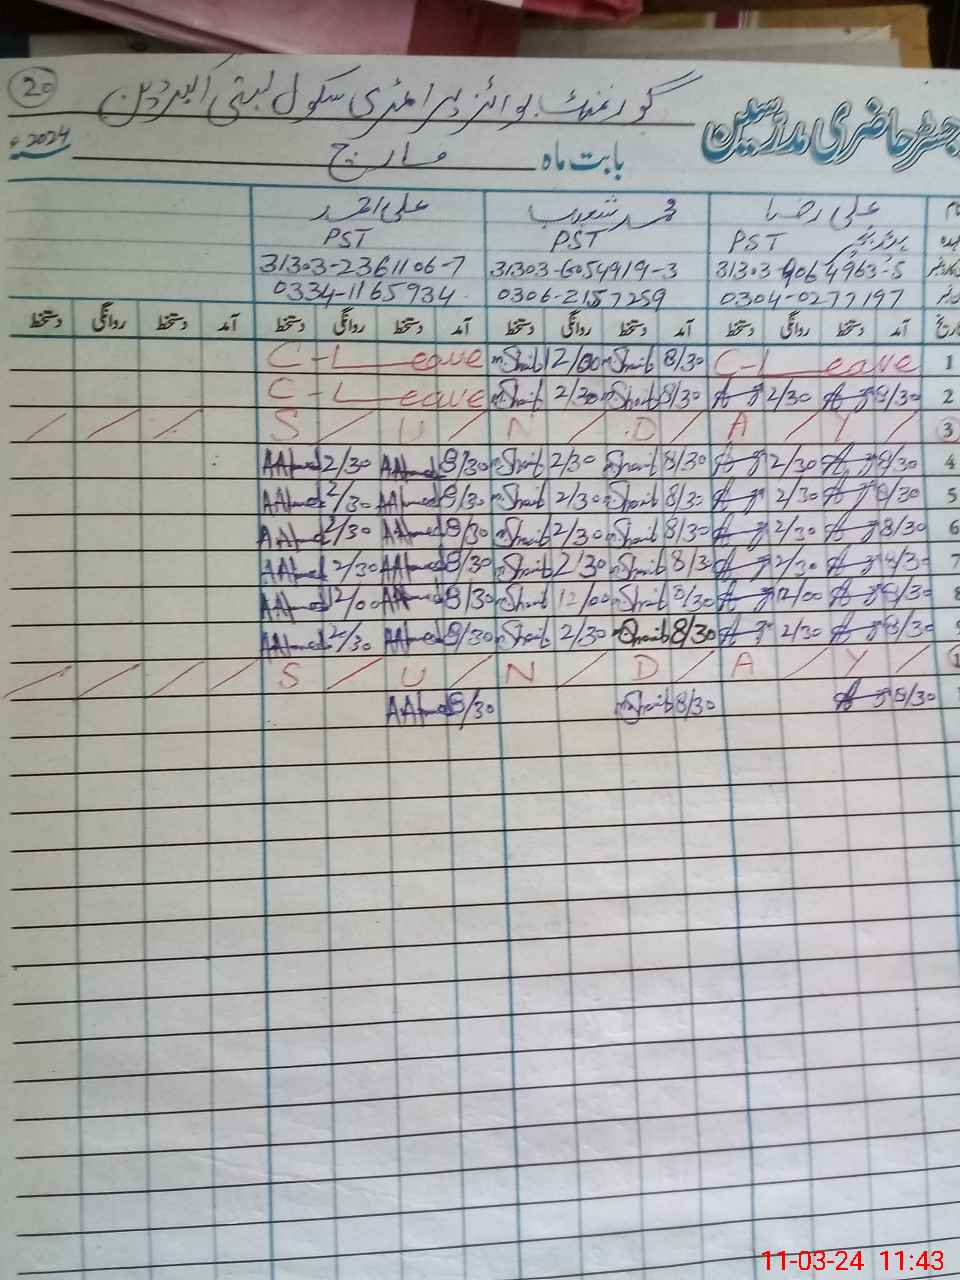 20
رجسٹر حاضری مدرسین
گورنمنٹ بوائز پرائمری سکول بستی
بابت ماہ مارچ 2024ء
علی رضا محمد شعیب علی احمد
PST PST PST
31303-9064963-5 31303-6054919-3 31303-2361106-7
0304-0277197 0306-2157259 0334-1165934
آمد دستخط روانگی دستخط آمد دستخط روانگی دستخط آمد دستخط روانگی دستخط آمد دستخط روانگی دستخط
1 C-Leave 8/30 Shoaib 12/00 Shoaib C-Leave
2 8/30 2/30 8/30 Shoaib 2/30 Shoaib C-Leave
3 SUNDAY
4 8/30 2/30 8/30 Shoaib 2/30 Shoaib 8/30 AAhmed 2/30 AAhmed
5 8/30 2/30 8/30 Shoaib 2/30 Shoaib 8/30 AAhmed 2/30 AAhmed
6 8/30 2/30 8/30 Shoaib 2/30 Shoaib 8/30 AAhmed 2/30 AAhmed
7 8/30 2/30 8/30 Shoaib 2/30 Shoaib 8/30 AAhmed 2/30 AAhmed
8 8/30 12/00 8/30 Shoaib 12/00 Shoaib 8/30 AAhmed 12/00 AAhmed
8/30 2/30 8/30 Shoaib 2/30 Shoaib 8/30 AAhmed 2/30 AAhmed
SUNDAY
8/30 8/30 Shoaib 8/30 AAhmed
11-03-24 11:43